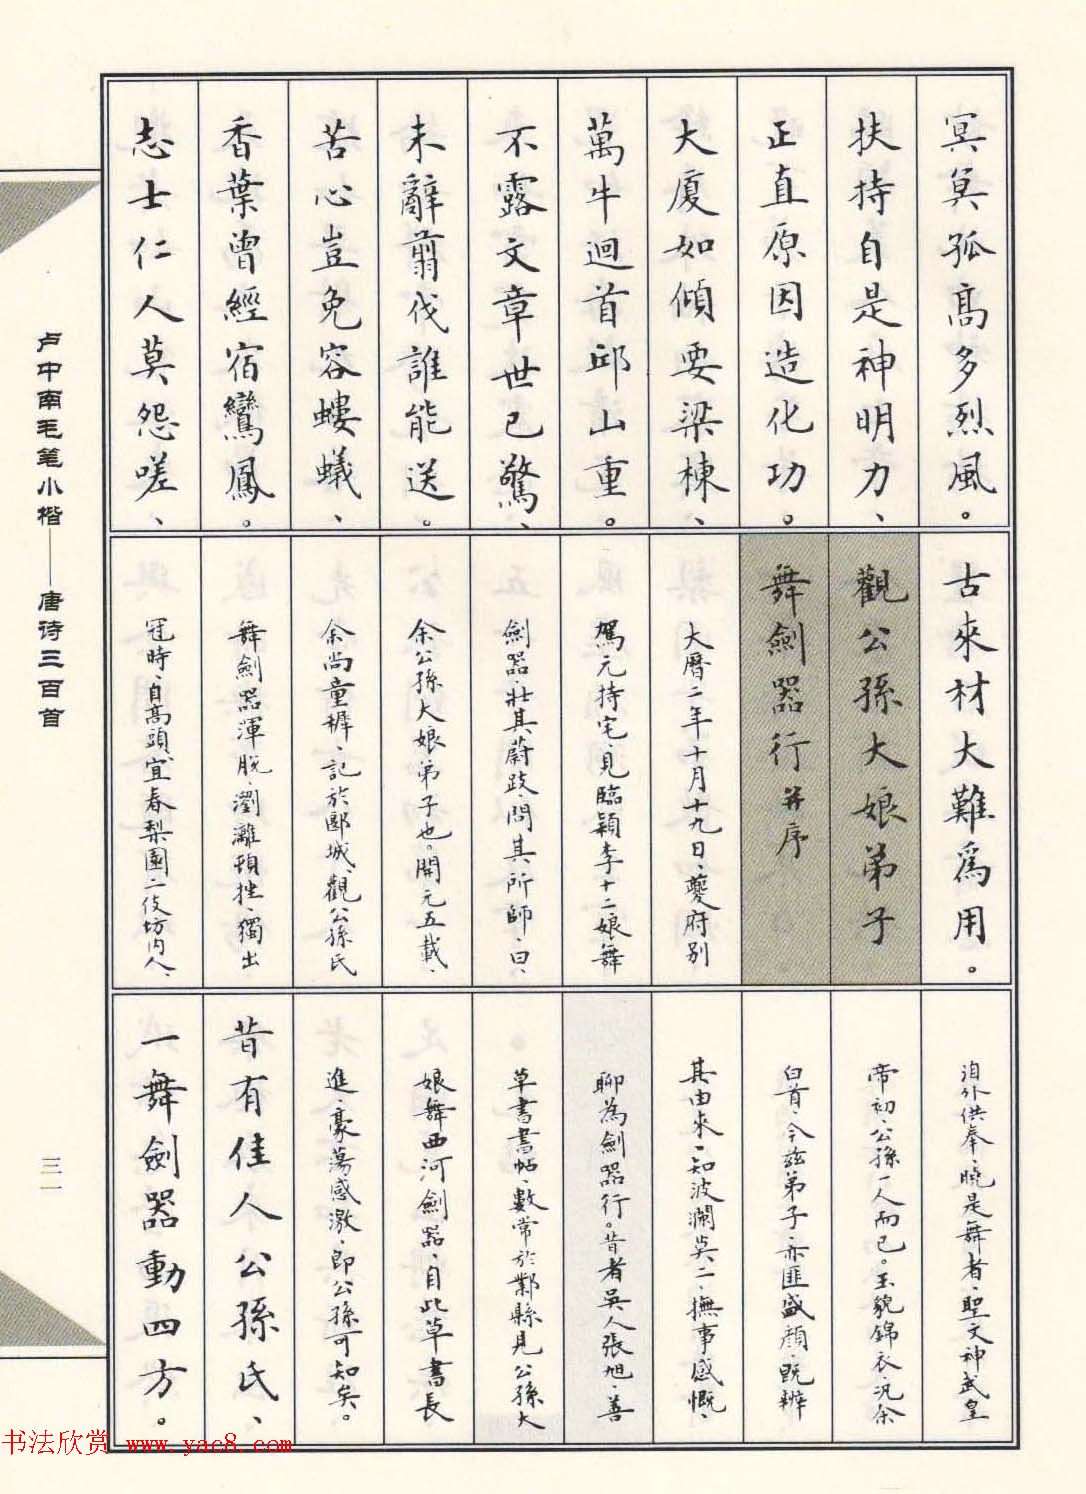 冥冥孤高多烈風。
扶持自是神明力、
正直原因造化功。
大廈如傾要梁棟、
萬牛迴首邱山重。
不露文章世已驚、
未辭翦伐誰能送。
苦心豈免容螻蟻、
香葉曾經宿鸞鳳。
志士仁人莫怨嗟、
古來材大難爲用。
觀公孫大娘弟子
舞劍器行并序
大曆二年十月十九日、夔府別
駕元持宅、見臨潁李十二娘舞
劍器、壯其蔚跂、問其所師、曰、
余公孫大娘弟子也。開元五載、
余尚童穉、記於郾城、觀公孫氏
舞劍器渾脫、瀏灕頓挫、獨出
冠時、自高頭宜春梨園二伎坊內人、
洎外供奉、曉是舞者、聖文神武皇
帝初、公孫一人而已。玉貌錦衣、況余
白首、今茲弟子、亦匪盛顏、既辨
其由來、知波瀾莫二、撫事感慨、
聊為劍器行。昔者吳人張旭、善
草書書帖、數常於鄴縣見公孫大
娘舞西河劍器、自此草書長
進、豪蕩感激、即公孫可知矣。
昔有佳人公孫氏、
一舞劍器動四方。
卢中南毛笔小楷——唐诗三百首
三一
书法欣赏 www.yac8.com